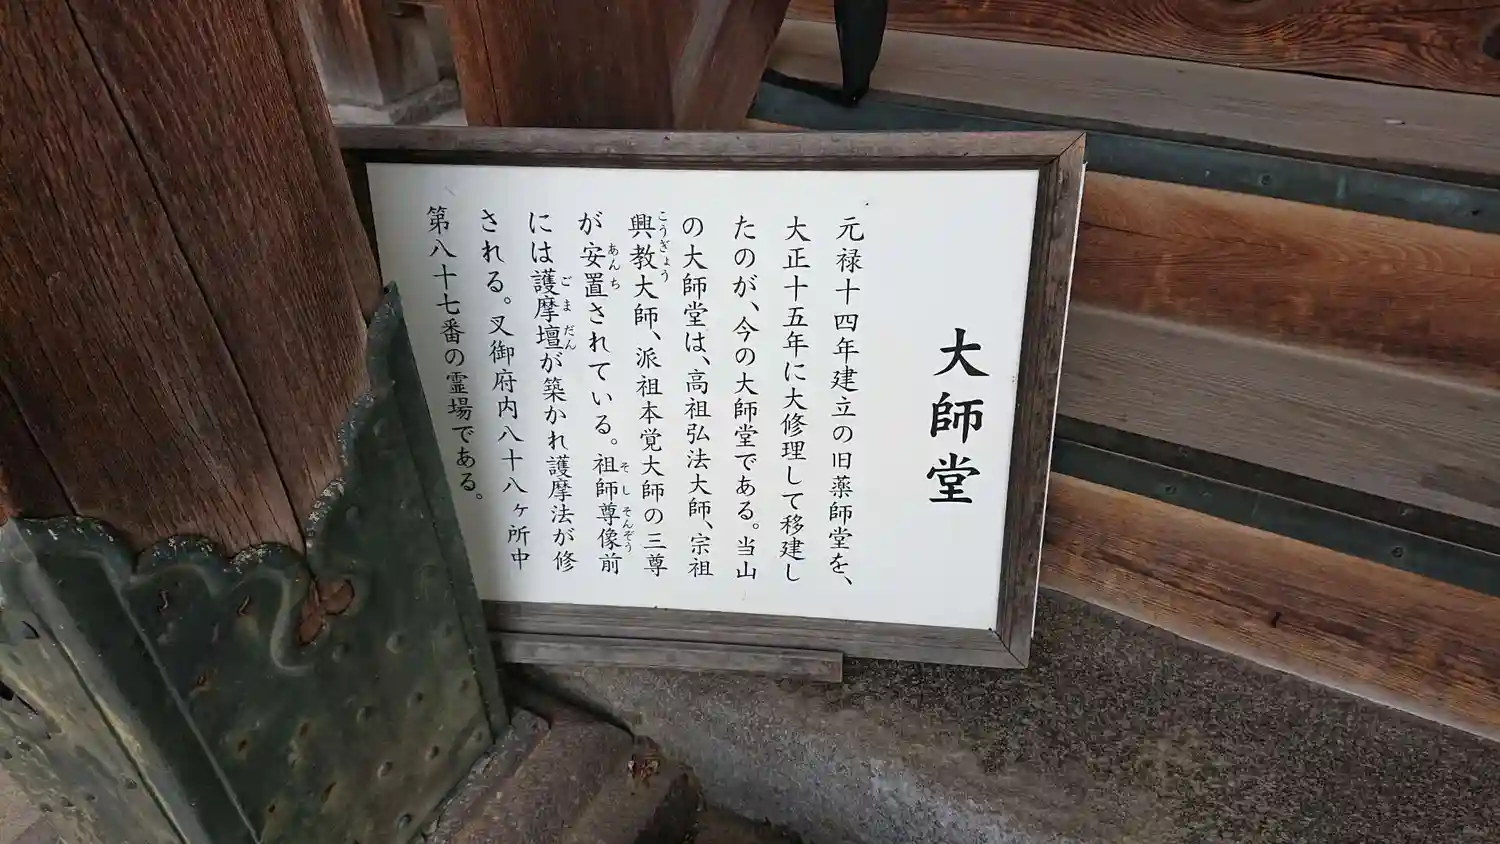 大師堂
元禄十四年建立の旧薬師堂を、
大正十五年に大修理して移建し
たのが、今の大師堂である。当山
の大師堂は、高祖弘法大師、宗祖
興教大師、派祖本覚大師の三尊
こうぎょう
が安置されている。祖師尊像前
あんち
そしそんぞう
には護摩壇が築かれ護摩法が修
ごまだん
される。又御府内八十八ヶ所中
第八十七番の霊場である。